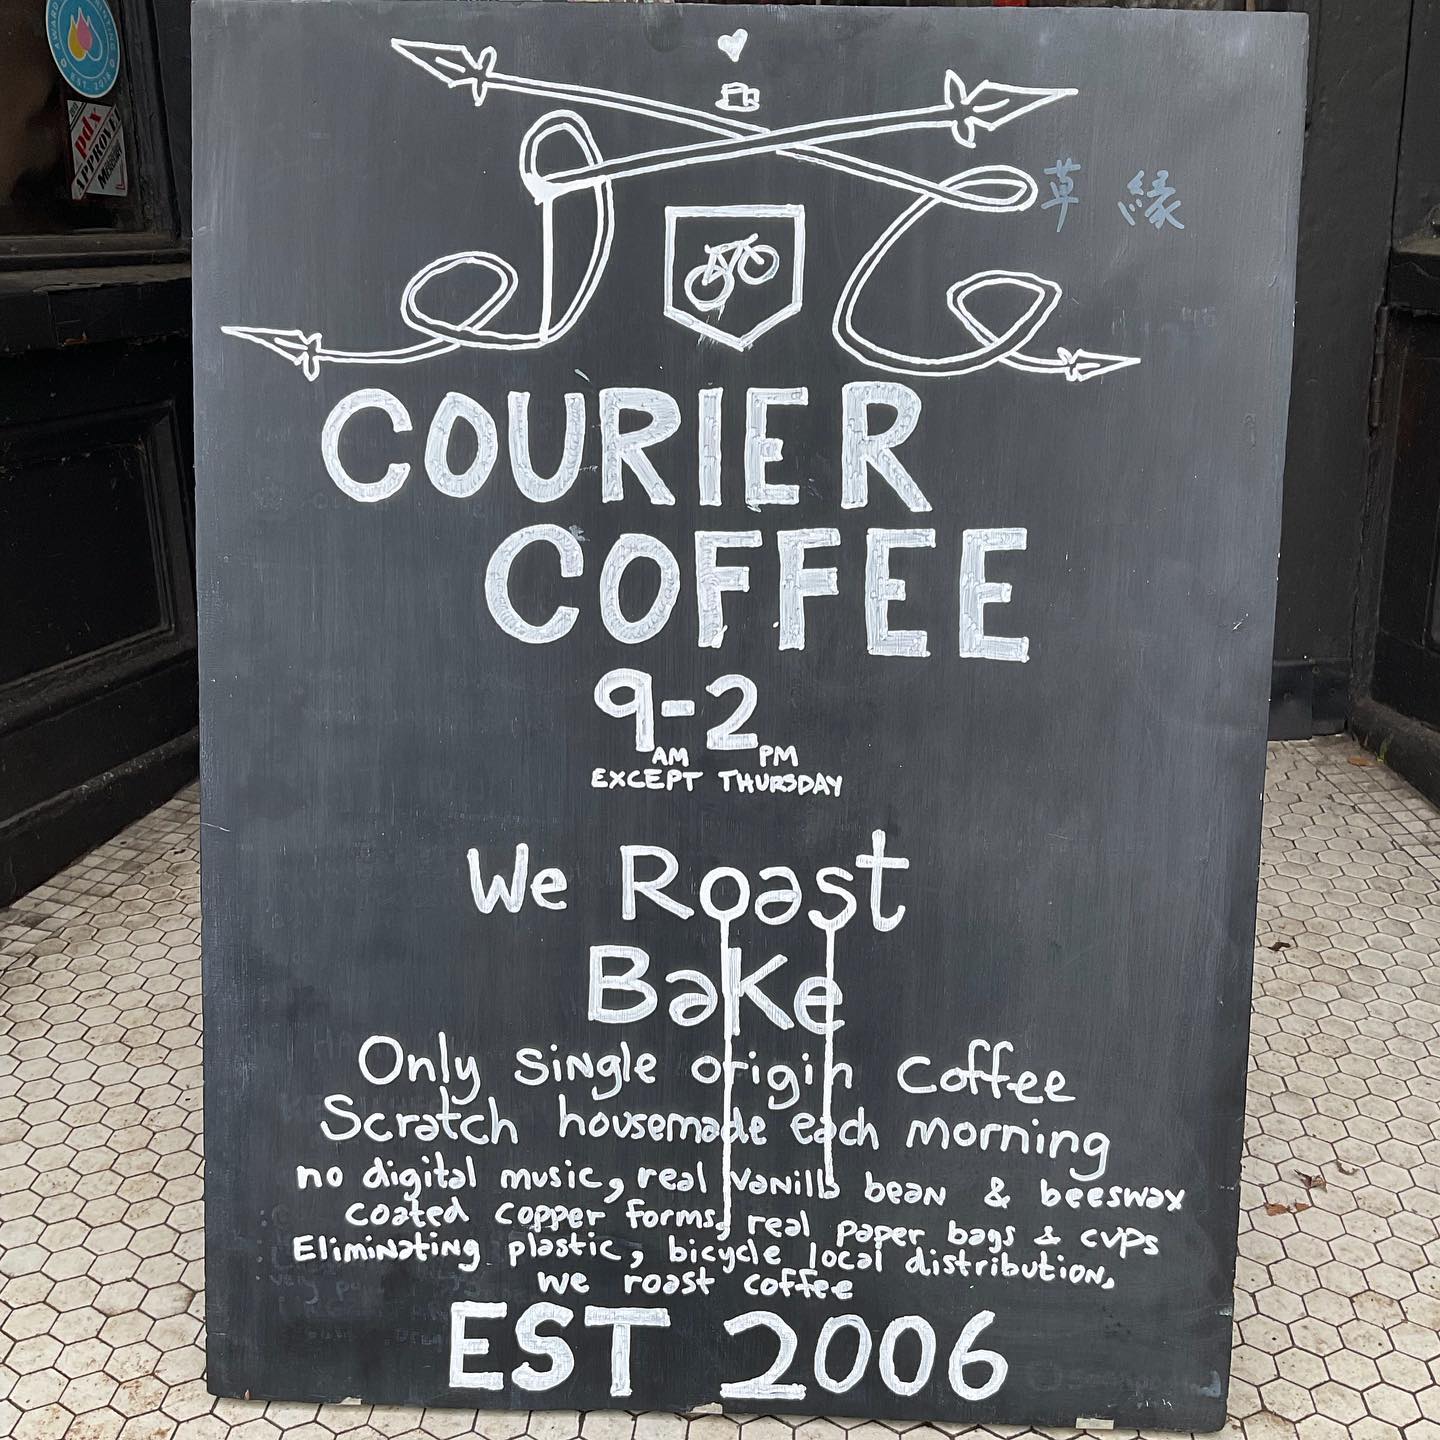 pdx
APPROVED
EST. 2018
草 縁
COURIER
COFFEE
9-2
AM PM
EXCEPT THURSDAY
We Roast
Bake
Only single origin coffee
Scratch housemade each morning
no digital music, real vanilla bean & beeswax
coated copper forms, real paper bags & cups
Eliminating plastic, bicycle local distribution,
we roast coffee
EST 2006